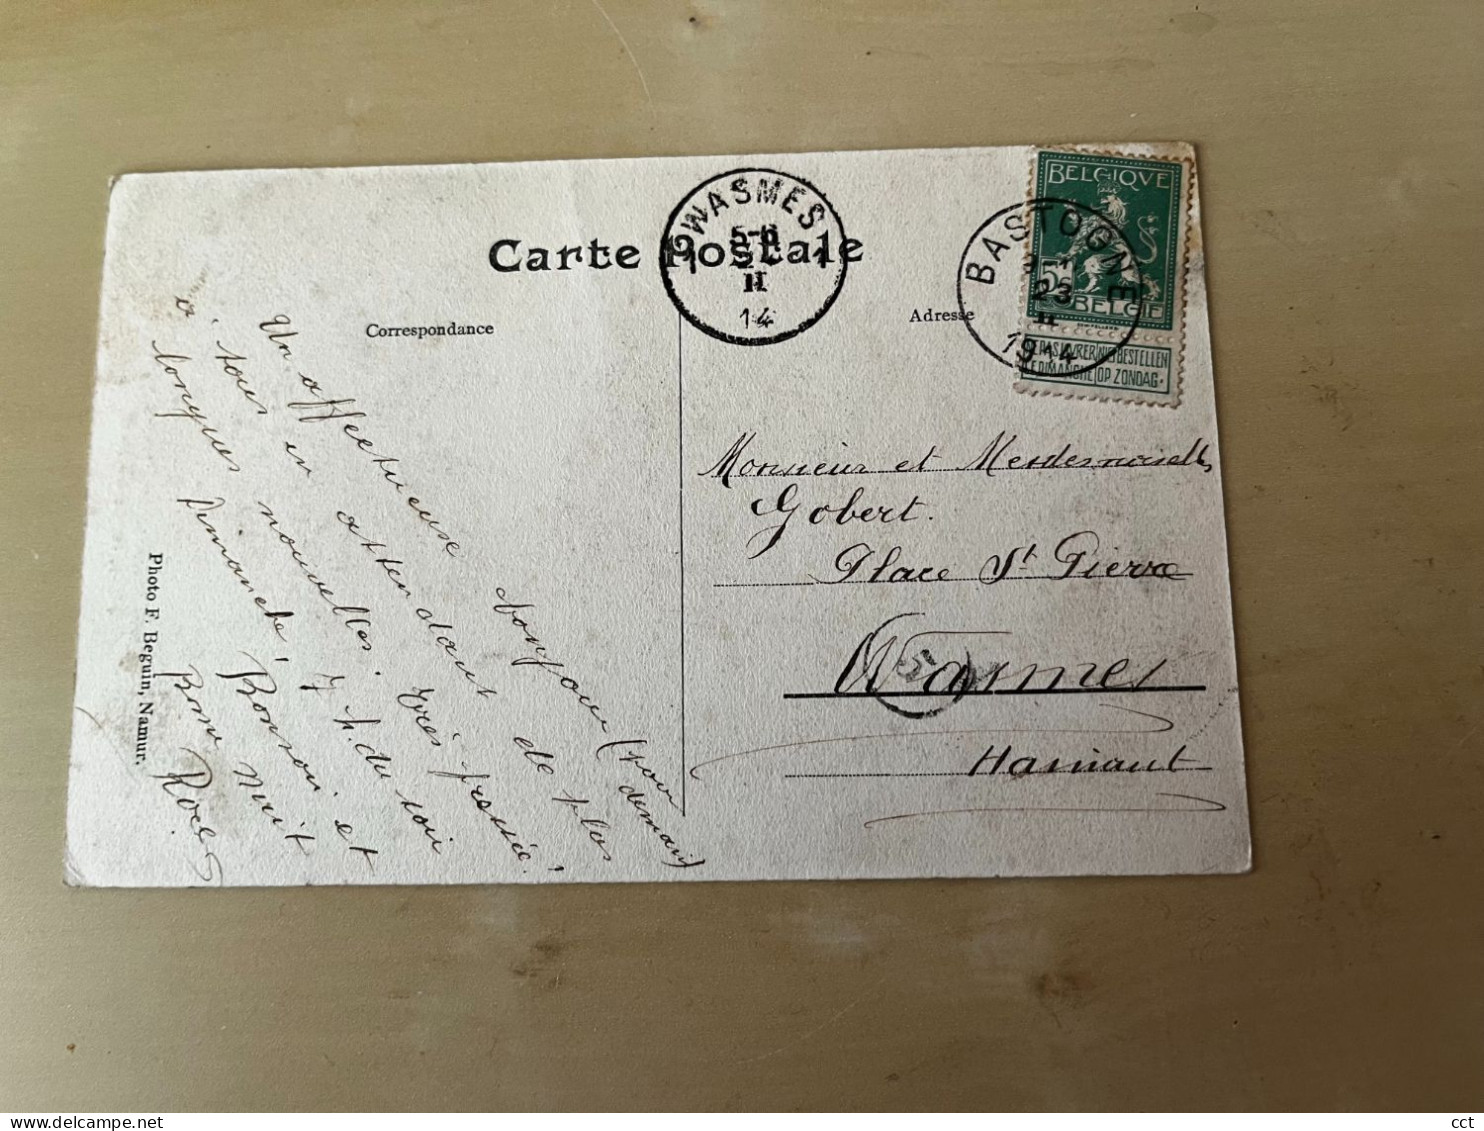 Carte Postale
Correspondance
Adresse
WASMES
1 1
II
14
BASTOGNE
23
II
1914
BELGIQVE
5c
BELGIE
NE PAS LIVRER NIET BESTELLEN
LE DIMANCHE OP ZONDAG
Un affectueux bonjour (pour demain)
à tous en attendant de plus
longues nouvelles. Très pressée!
Dimanche, 7 h. du soir
Bonsoir et
Bonne nuit
Monsieur et Mesdemoiselles
Gobert.
Place St Pierre
Wasmes
Hainaut
5
Photo F. Beguin, Namur.